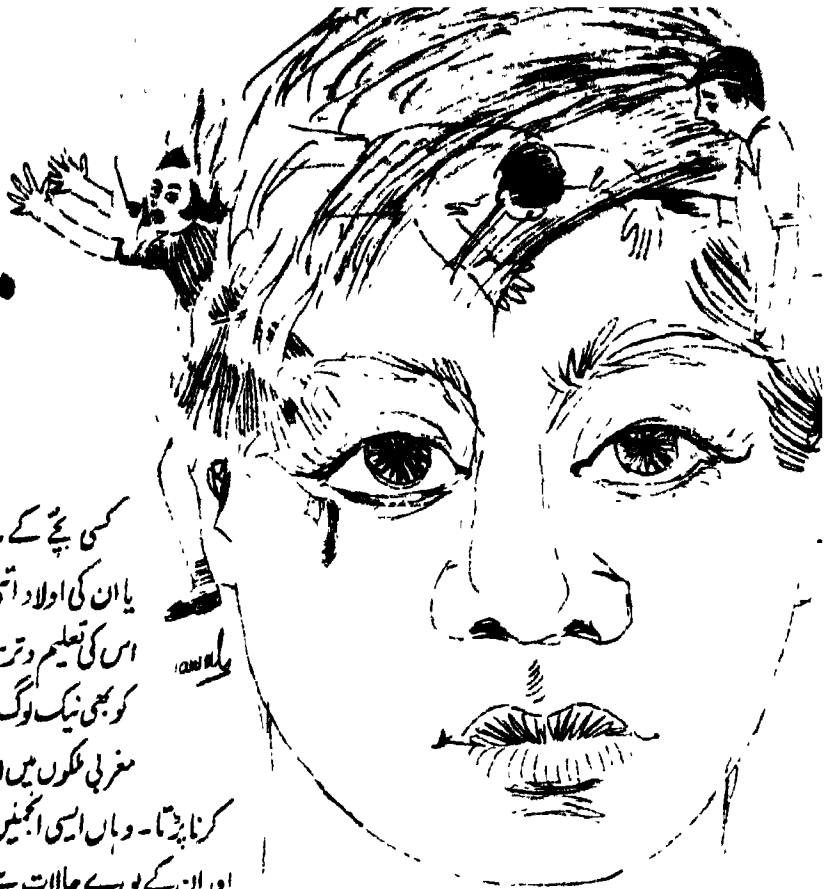 کسی بچّے کے
یا ان کی اولاد اتنی
اس کی تعلیم و تر
کو بھی نیک لوگ
مغربی ملکوں میں
کرنا پڑتا۔ وہاں ایسی انجمنیں
اور ان کے پورے حالات سے